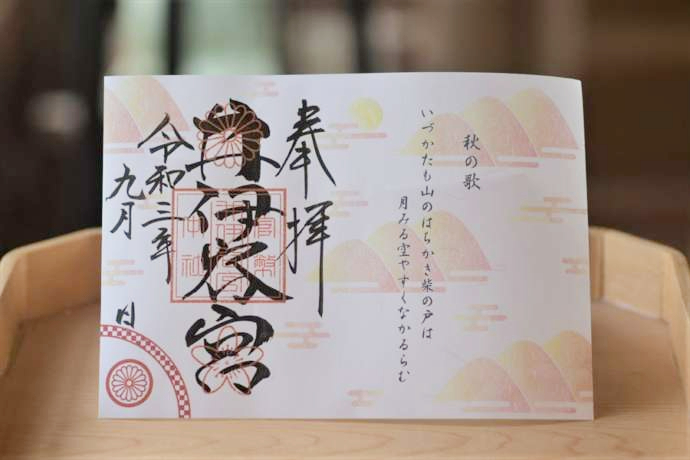 秋の歌
いづかたも山のはちかき柴の戸は
月みる空やすくなかるらむ
奉拝
井伊谷宮
官幣
中社
令和三年
九月 日